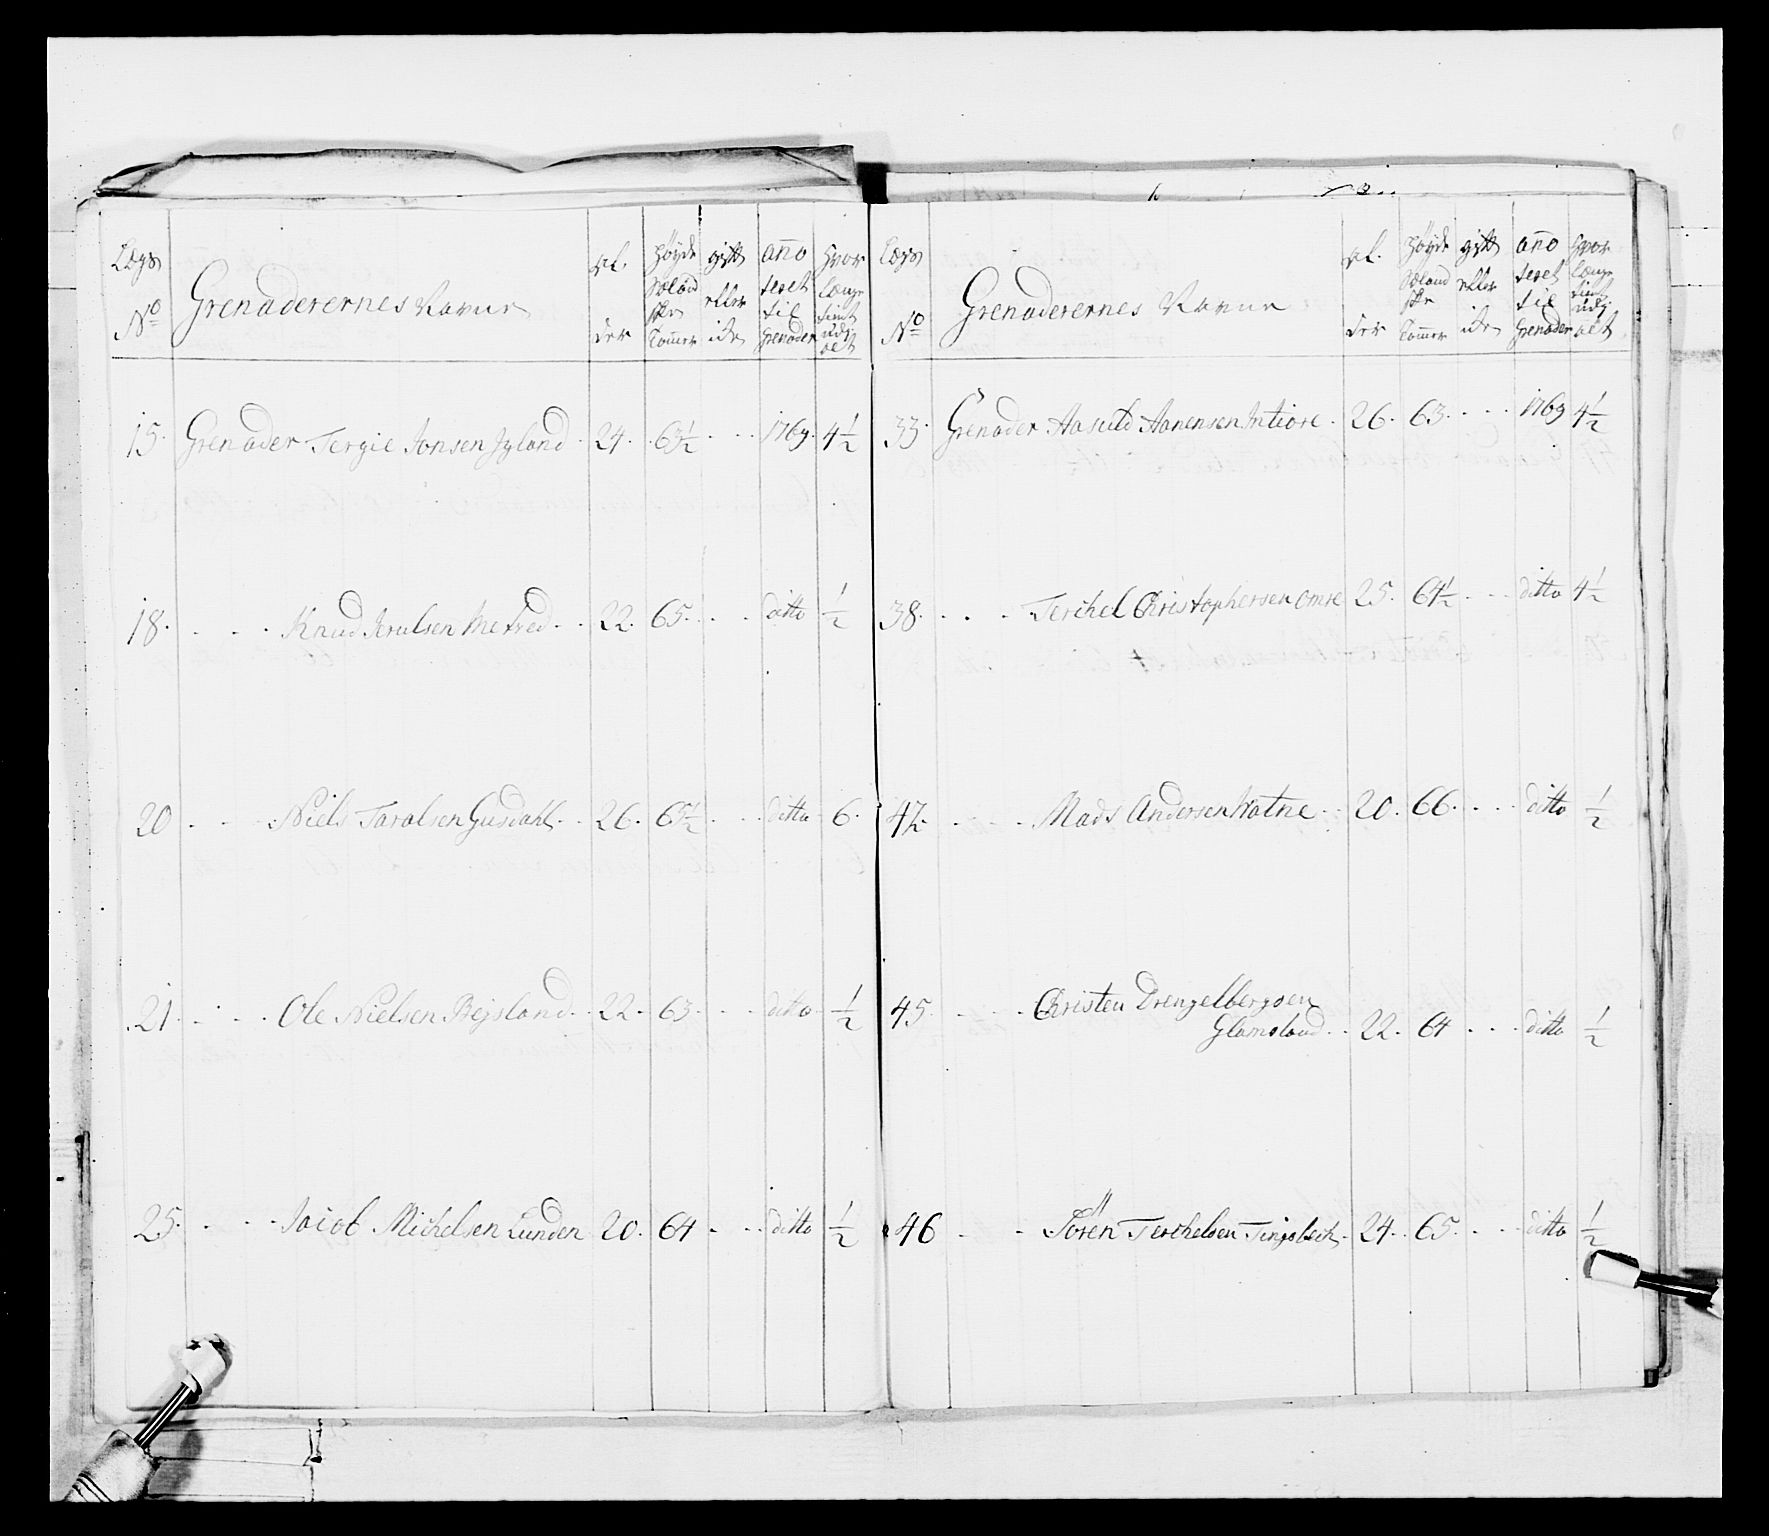 Lægs No Grenaderernes Navne Al- der Høyde Sælandske Tommer gift eller icke año sedet til Grenader Hvor længe tient udj alt
15. Grenader Tergie Jonsen Jyland. 24. 63½ . . . 1769. 4½
18. . . . Knud Jerulsen Metved . . 22. 65. . . . ditto ½
20 . . . Niels Taralsen Gusdahl . . 26. 65½ . . . ditto 6.
21. . . . Ole Nielsen Rejsland . . 22. 63. . . . ditto ½
25. . . . Jacob Michelsen Lunden 20. 64 . . . ditto ½
Lægs No Grenaderernes Navne Al- der Høyde Sælandske Tommer gift eller icke año sedet til Grenader Hvor længe tient udj alt
33. Grenader Aasuld Aanensen Intiore. 26. 63. . . . 1769 4½
38. . . . Terchel Christophersen Omre 25. 64½ . . . ditto 4½
42. . . . Mads Andersen Watne . . 20. 66. . . . ditto ½
45. . . . Christen Drengelbergsen
Glamsland . . 22. 64 . . . ditto ½
46 . . Sören Terchelsen Tingsbech. 24. . 65. . . . ditto ½